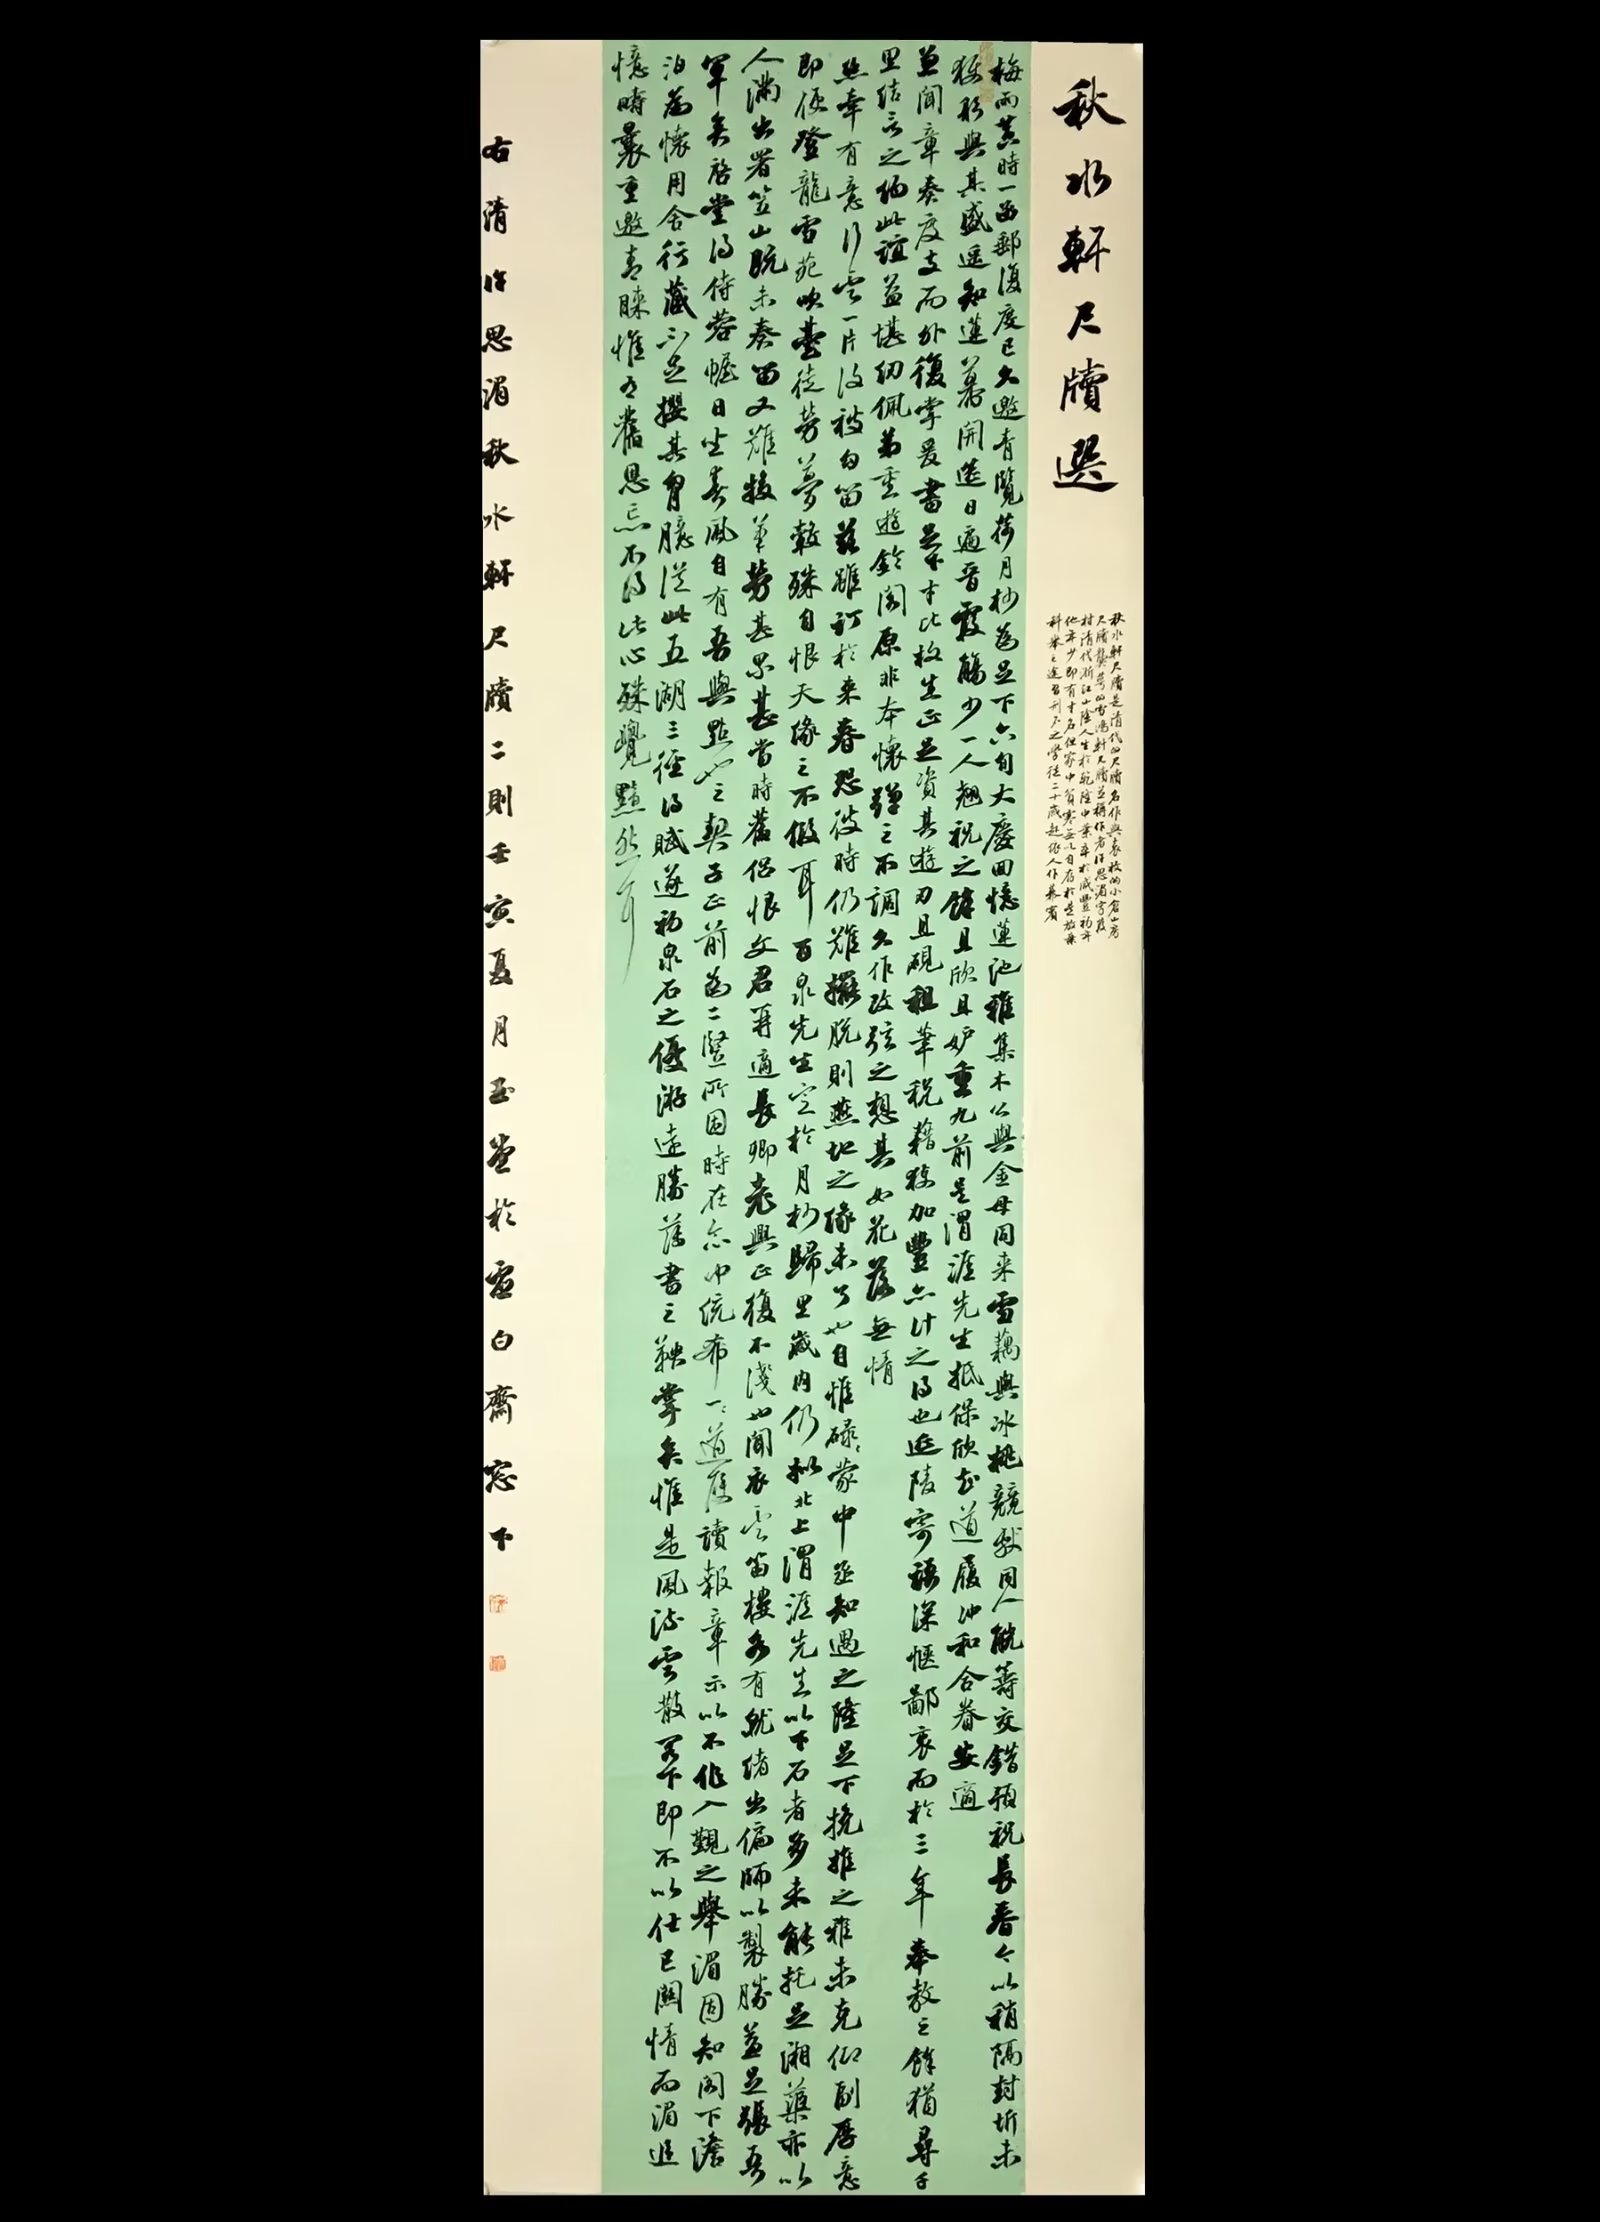 秋水軒尺牘選
秋水軒尺牘是清代的尺牘名作與袁枚的小倉山房
尺牘龔萼的雪鴻軒尺牘並稱作者許思湄字葭
村清代浙江山陰人生於乾隆中葉卒於咸豐初年
他年少即有才名但家中貧寒無以自存於是放棄
科舉之途習刑名之學徒二十歲起依人作幕賓
梅雨黃時一函郵復度已久邀青覽荷月杪為足下六旬大慶回憶蓮池雅集木公與金母同來雪藕與冰桃競獻同人觥籌交錯預祝長春今以稍隔封圻未
獲躬與其盛遥知蓮幕開筵日遍晉霞觴少一人翹祝之餘且欣且妒重九前是渭涯先生抵保欣知道履沖和合眷安適
並聞章奏度支而外復掌爰書足下才比枚生正足資其遊刃且硯租筆税藉獲加豐亦計之得也延陵寄語深愜鄙衷而於三年奉教之餘猶尋千
里結言之緬此誼益堪紉佩弟重遊鈴閣原非本懷彈之不調久作改弦之想其如花落無情
然牽有意行雲一片後被勾留茲雖訂於來春恐彼時仍難擺脱則燕地之緣未了也自惟碌碌蒙中丞知遇之隆足下挽推之雅未克仰副厚意
即便登龍雪苑吹臺徒勞夢轂殊自恨天緣之不假耳百泉先生定於月杪歸里歲内仍擬北上渭涯先生以下石者多未能托足湘蘂亦以
人滿出署笠山既未奏留又難投筆勞甚累甚當時舊侶恨文君再適長卿老興正復不淺也聞衣雲笛樓各有就緒出偏師以製勝益足張吾
軍矣啓堂得侍蓉幄日坐春風自有吾與點也之契子正前為二豎所困時在念中統希一一道應讀報章示以不作入覲之舉湄固知閣下澹
泊為懷用舍行藏不足攖其胷臆從此五湖三徑得賦遂初泉石之優游遠勝簿書之鞅掌矣惟是風流雲散閣下即不以仕已關情而湄追
憶疇曩重邀青睞惟有舊恩忘不得此心殊覺黯然耳
右清許思湄秋水軒尺牘二則壬寅夏月玉堂於虛白齋窓下